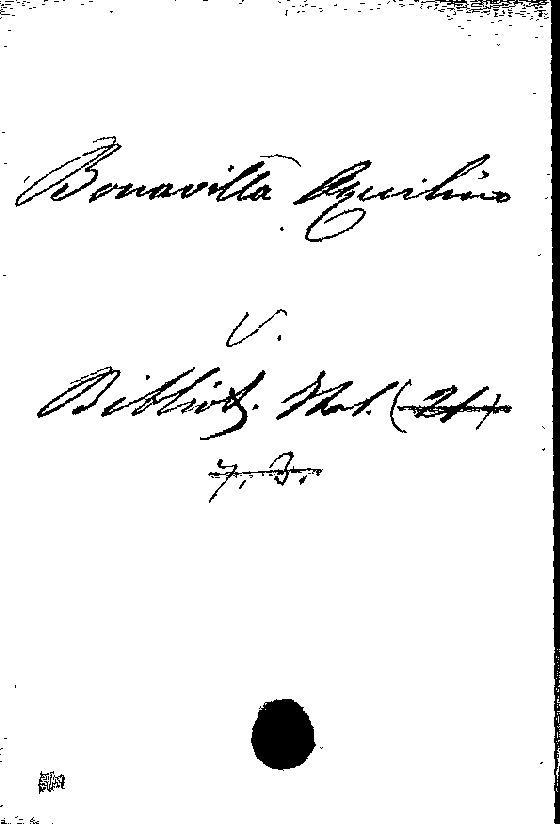 Bonavilla Aquilino
V.
Biblioth. Ital. (21)
7. 3.